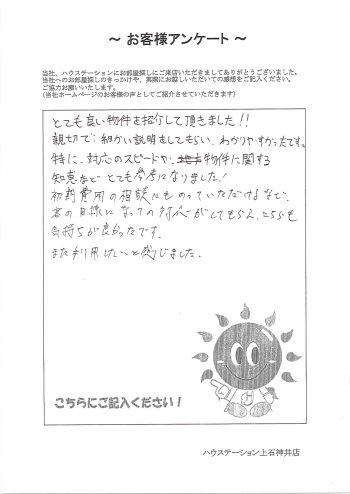 ～ お客様アンケート ～
当社、ハウステーションにお部屋探しにご来店いただきましてありがとうございました。
当社へのお部屋探しのきっかけや、実際にお越しいただいての感想をご記入ください。
ご協力お願いいたします。
(当社ホームページのお客様の声としてご紹介させていただきます)
とても良い物件を紹介して頂きました!!
親切で細かい説明をしてもらい、わかりやすかったです。
特に、対応のスピードや、物件に関する
知恵などとても参考になりました!
初期費用の相談にものっていただけるなど、
客の目線になっての対応がしてもらえ、こちらも
気持ちが良かったです。
また利用したいと感じました。
こちらにご記入ください!
ハウステーション上石神井店